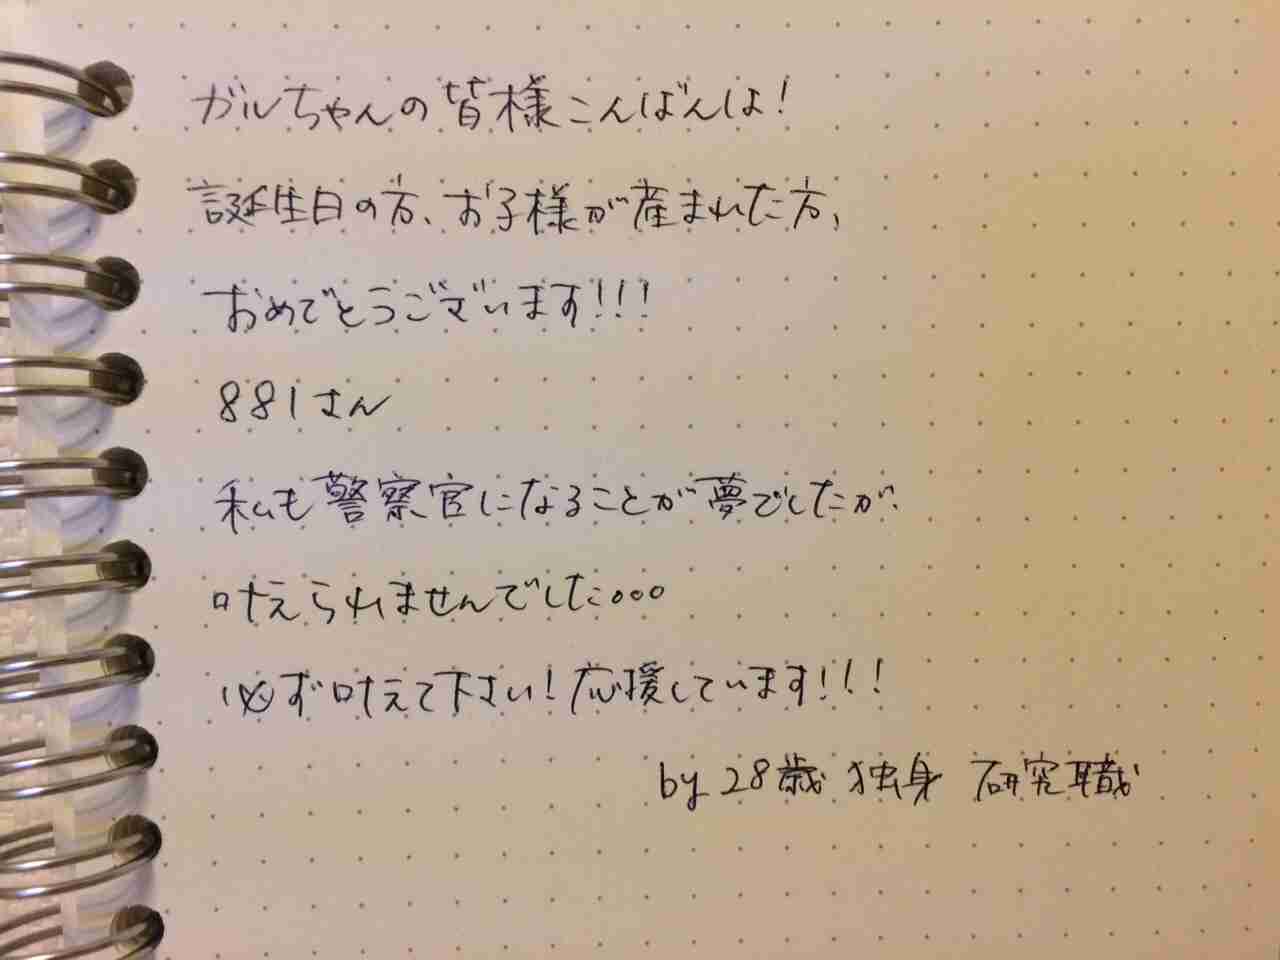 ガルちゃんの皆様こんばんは!
誕生日の方、お子様が産まれた方、
おめでとうございます!!!
881さん
私も警察官になることが夢でしたが、
叶えられませんでした。。。
必ず叶えて下さい!応援しています!!!
by 28歳 独身 研究職